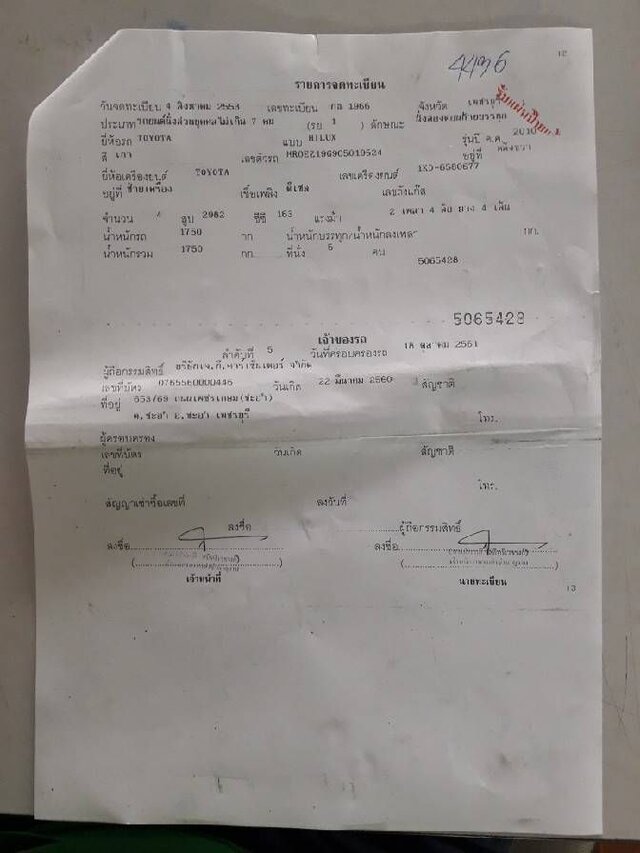 4436
12
รายการจดทะเบียน
วันจดทะเบียน 4 สิงหาคม 2553 เลขทะเบียน กล 1966 จังหวัด เพชรบุรี
ประเภท รถยนต์นั่งส่วนบุคคลไม่เกิน 7 คน (รย 1 ) ลักษณะ นั่งสองตอนท้ายบรรทุก
ยี่ห้อรถ TOYOTA แบบ HILUX รุ่นปี ค.ศ. 2010
สี เทา เลขตัวรถ อยู่ที่
ยี่ห้อเครื่องยนต์ TOYOTA เลขเครื่องยนต์ 1KD-6580677
อยู่ที่ ซ้ายเครื่อง เชื้อเพลิง ดีเซล เลขถังแก๊ส
จำนวน 4 สูบ 2982 ซีซี 163 แรงม้า 2 เพลา 4 ล้อ ยาง 4 เส้น
น้ำหนักรถ 1750 กก. น้ำหนักบรรทุก/น้ำหนักลงเพลา กก.
น้ำหนักรวม 1750 กก. ที่นั่ง 5 คน
5065428
5065428
เจ้าของรถ
ลำดับที่ 5 วันที่ครอบครองรถ 18 ตุลาคม 2561
ผู้ถือกรรมสิทธิ์
เลขที่บัตร 0765560000446 วันเกิด 22 มีนาคม 2560 สัญชาติ
ที่อยู่ 853/69 ถนนเพชรเกษม(ชะอำ)
ต.ชะอำ อ.ชะอำ เพชรบุรี โทร.
ผู้ครอบครอง
เลขที่บัตร วันเกิด สัญชาติ
ที่อยู่
โทร.
สัญญาเช่าซื้อเลขที่ ลงวันที่
ลงชื่อ ผู้ถือกรรมสิทธิ์
ลงชื่อ ลงชื่อ
เจ้าหน้าที่ นายทะเบียน
13